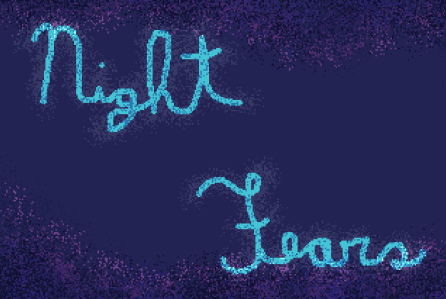 Night
Fears